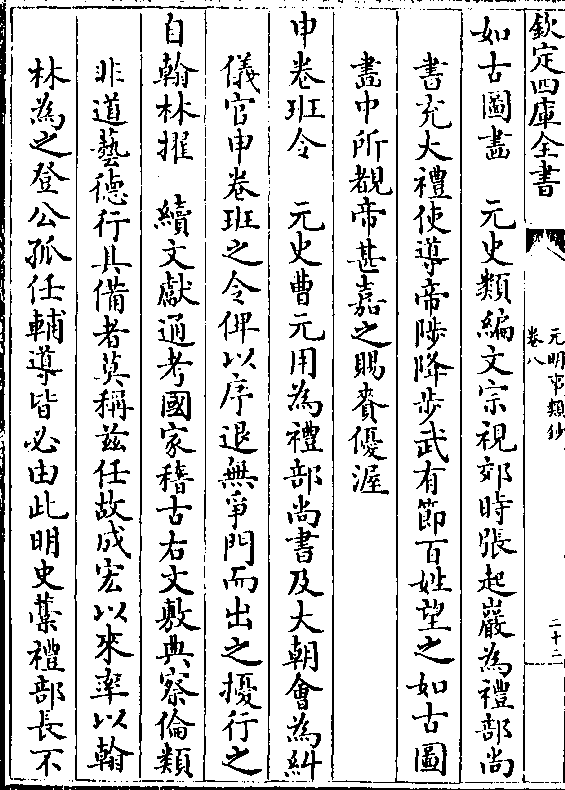 欽定四庫全書
元明事類鈔
卷八
二十二
如古圖畫　元史類編文宗視郊時張起巖為禮部尚
書充大禮使導帝陟降步武有節百姓望之如古圖
畫中所覩帝甚嘉之賜賚優渥
申卷班令　元史曹元用為禮部尚書及大朝會為糾
儀官申卷班之令俾以序退無爭門而出之擾行之
自翰林擢　續文獻通考國家稽古右文敷典察倫類
非道藝德行具備者莫稱兹任故成宏以來率以翰
林為之登公孤任輔導皆必由此明史藁禮部長不